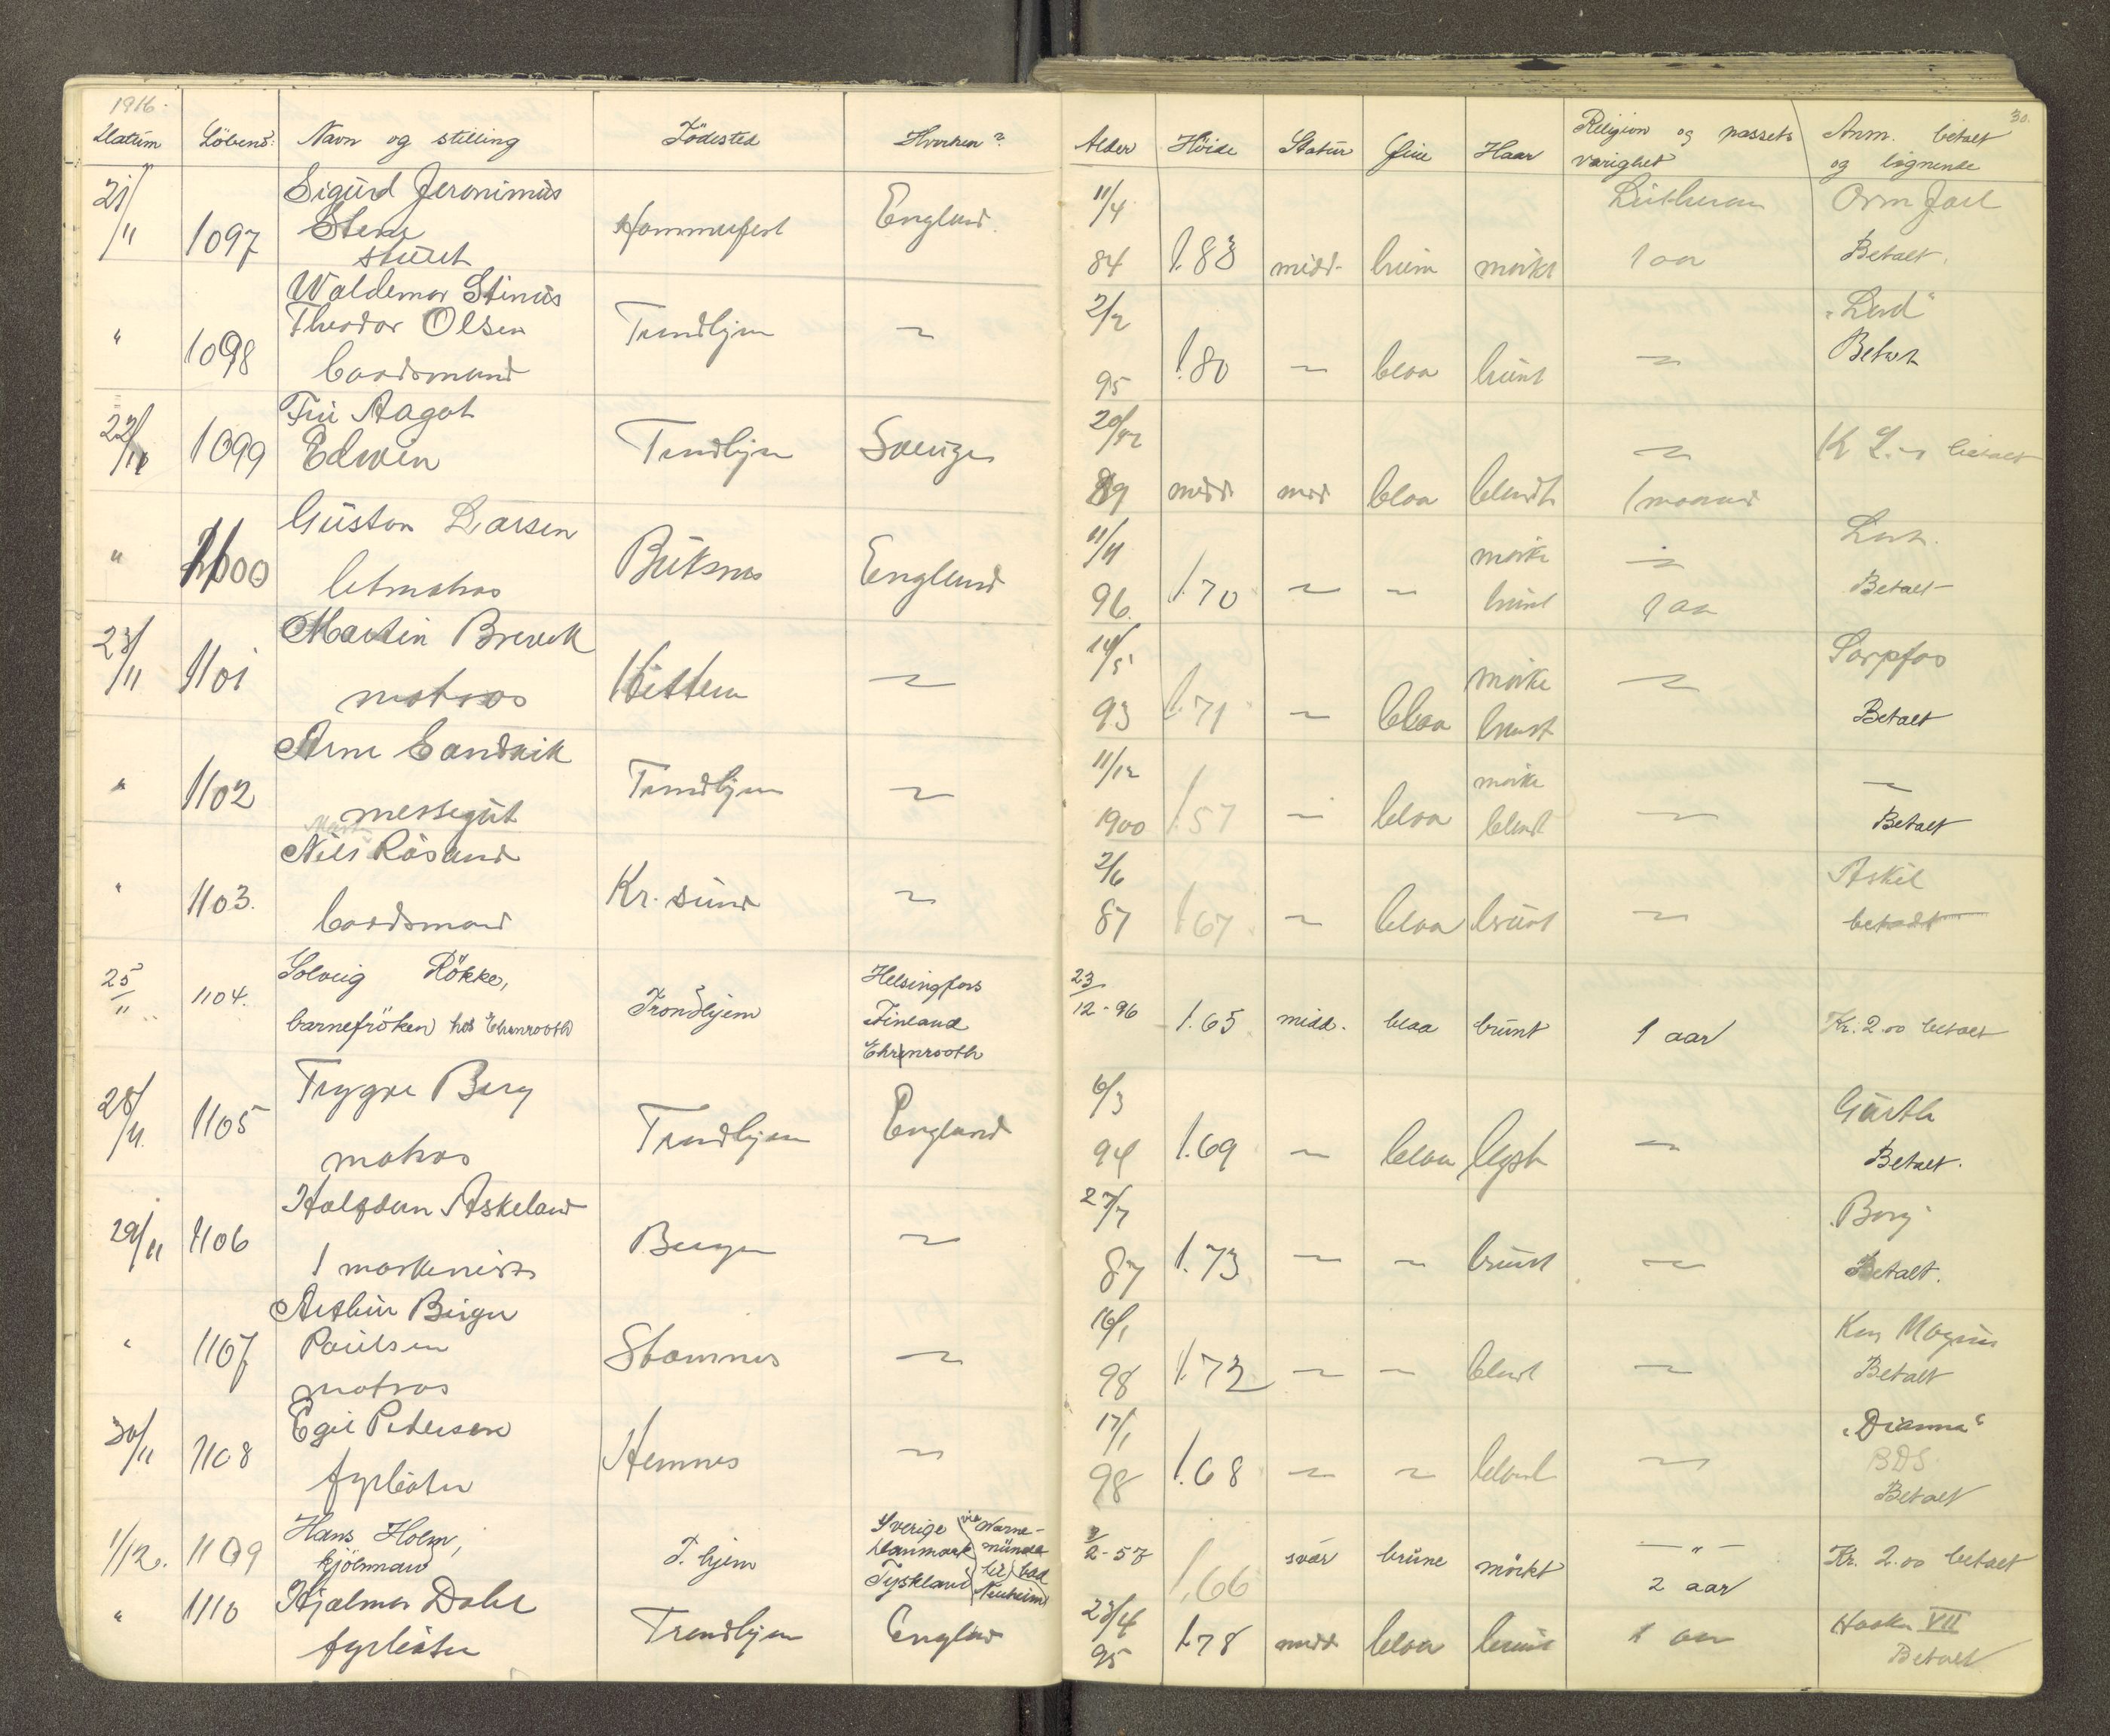 1916.
30.
Datum Löbenº: Navn og stilling Födested Hvorhen? Alder Höide Statur Öine Haar Religion og passets Anm. betalt
varighet og lignende
21/11 1097 Sigurd Jeronimus Hammerfest England 11/4 Lutheran Orm Jarl
Stene
stuert 84 1.83 midd- brun mörkt 1 aar Betalt.
Waldemar Stinus
" 1098 Theodor Olsen Trondhjem 〃 2/2 "Lord"
baadsmand 95 1.80 〃 blaa brunt 〃 Betalt
22/11 1099 Fru Aagot Trondhjem Sverige 20/12 〃 K 2.- betalt
Edwin 89 midd mid blaa blondt 1 maaned
" 1100 Gustav Larsen Buksnes England 11/11 mörke 〃
letmatros 96 1.70 〃 〃 brunt 1 aar Betalt
23/11 1101 Martin Brevik Hittern 〃 14/5 mörke 〃 Sarpfos
matros 93 1.71 〃 blaa brunt Betalt
" 1102 Arne Sandvik Trondhjem 〃 11/12 mörke 〃
messegut 1900 1.57 〃 blaa blond 〃 Betalt
" 1103. Nils Rösand Kr. sund 〃 2/6 Askil
baadsmand 87 1.67 〃 blaa brunt 〃 betalt
25/11 1104. Solveig Rökke, Trondhjem Helsingfors 23/12-96 1.65 midd. blaa brunt 1 aar Kr. 2.00 betalt
barnefröken hos Ehrenrooth Finland
Ehrenrooth
28/11 1105 Trygve Berg Trondhjem England 6/3 Garth
matros 94 1.69 〃 blaa lyst 〃 Betalt.
29/11 1106 Halfdan Askeland Bergen 〃 27/7 Borg
1 maskinist 87 1.73 〃 〃 brunt 〃 Betalt.
" 1107 Arthur Birger Stamnes 〃 16/1 Kong Magnus
Paulsen
matros 98 1.72 〃 〃 blond 〃 Betalt
30/11 1108 Egil Pedersen Hemnes 〃 17/1 "Dianna"
fyrböter 98 1.68 〃 〃 blond 〃 BDS.
Betalt
1/12. 1109 Hans Holm, T. hjem Sverige via Warne-
kjölmand Danmark münde
Tyskland til bad
Nauheim
2-57 1.66 svær brune mörkt — " — Kr. 2.00 betalt
2 aar
" 1110 Hjalmar Dahl Trondhjem England 23/4 Haakon VII
fyrböter 95 1.78 midd blaa brunt 1 aar Betalt